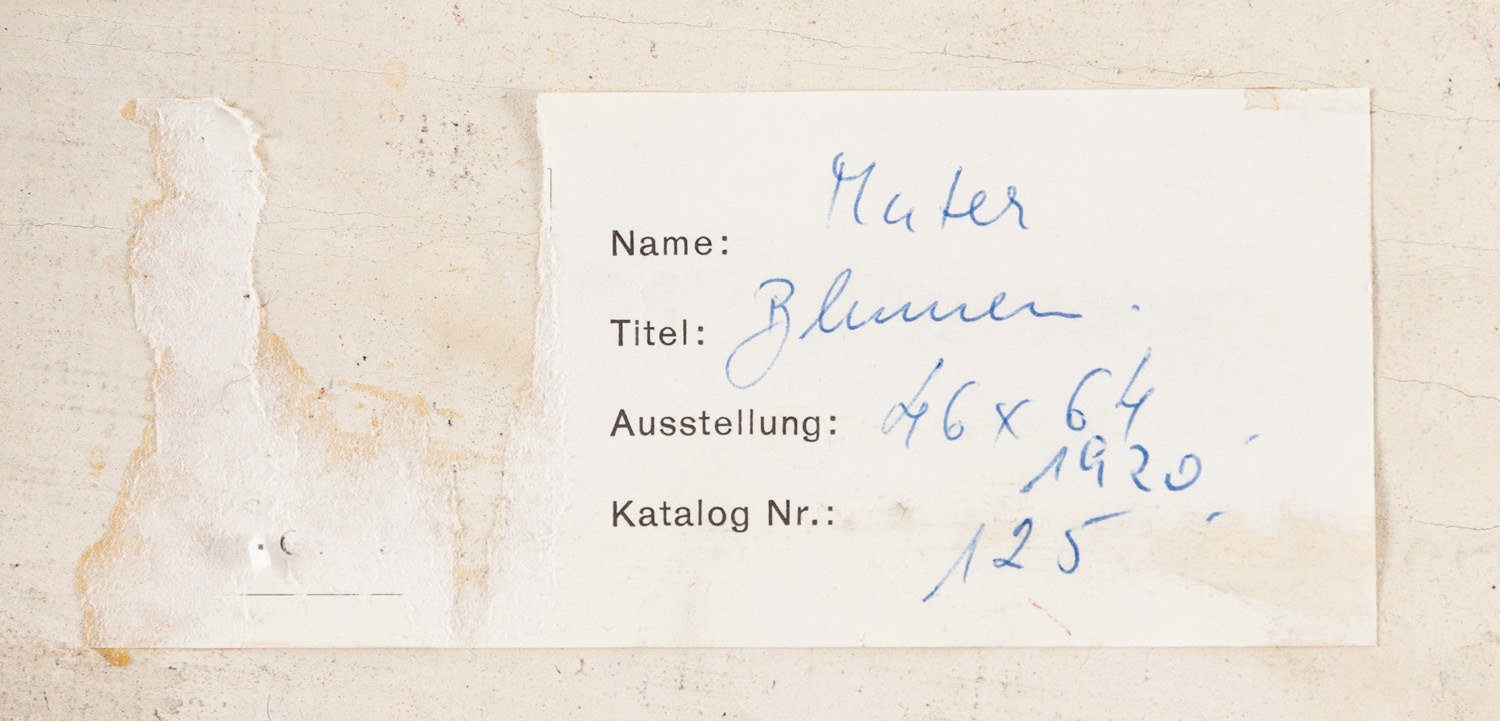 Name: Muter
Titel: Blumen.
Ausstellung: 46 x 64
1920
Katalog Nr.: 125